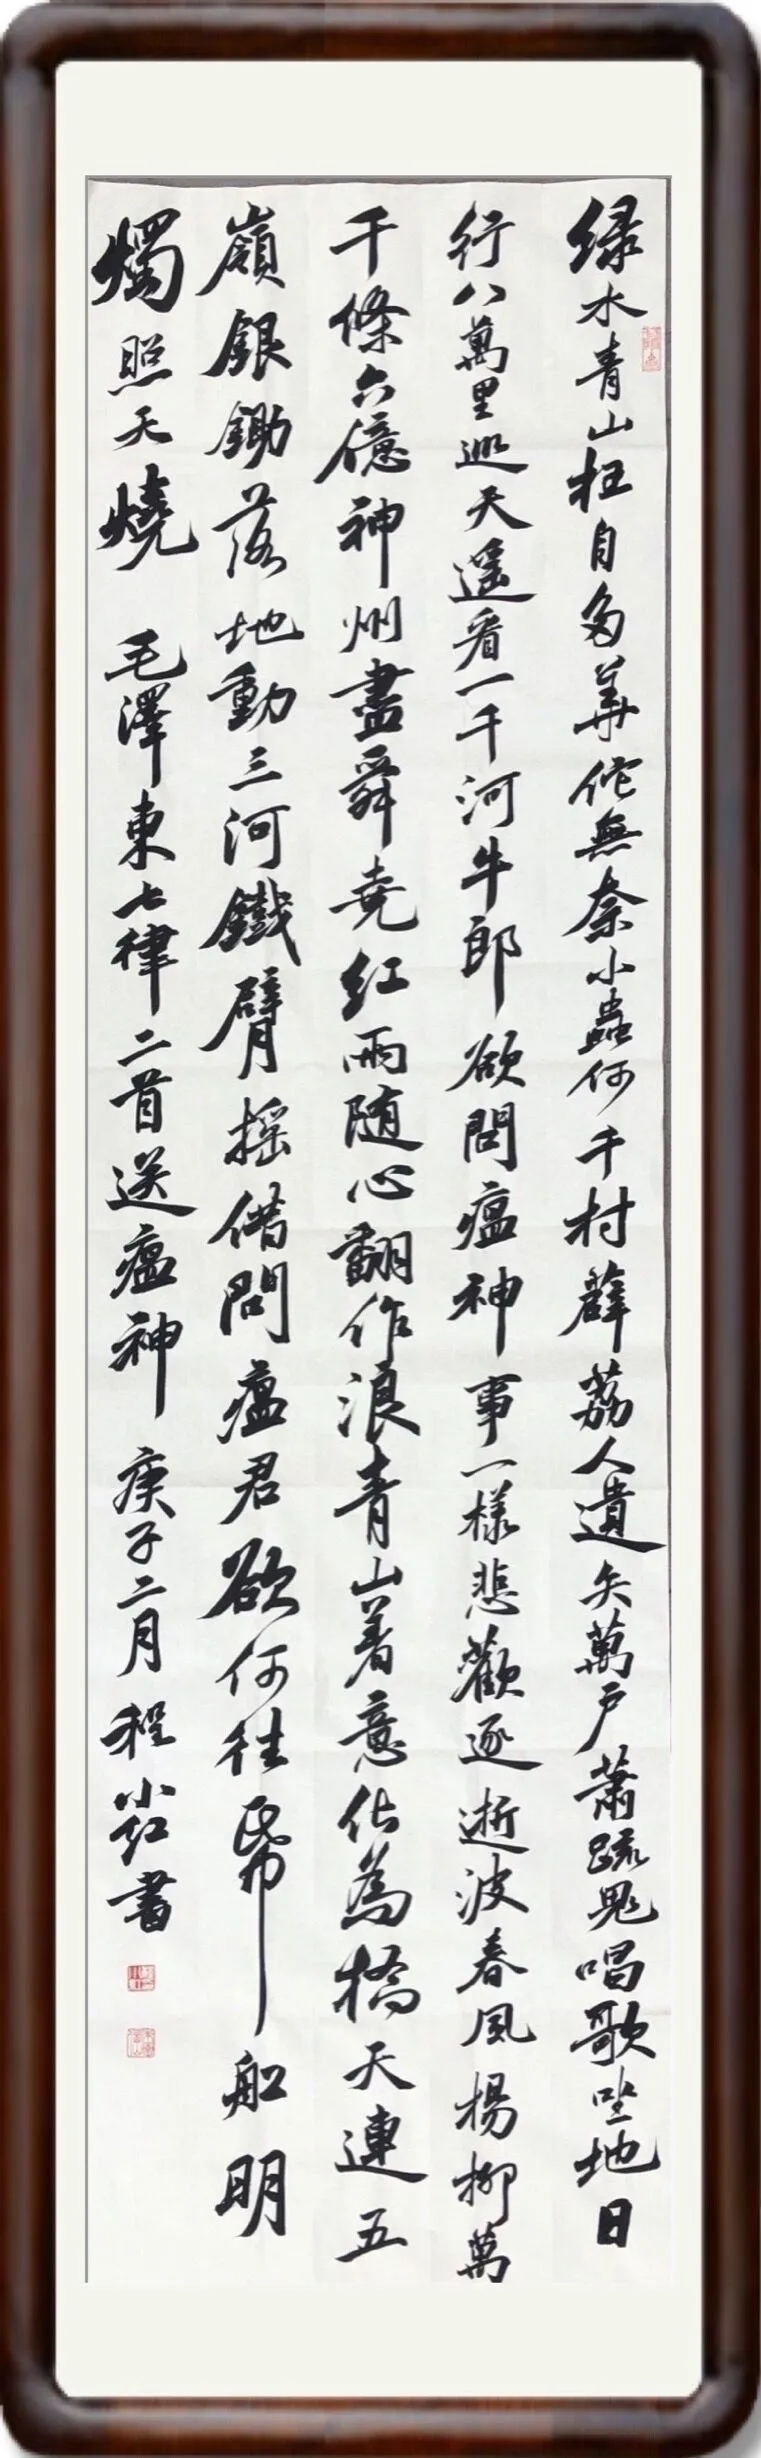 绿水青山枉自多華佗無奈小蟲何千村薜荔人遺矢萬户蕭疏鬼唱歌坐地日
行八萬里巡天遥看一千河牛郎欲問瘟神事一樣悲歡逐逝波春風楊柳萬
千條六億神州盡舜堯紅雨随心翻作浪青山着意化為橋天連五
嶺銀鋤落地動三河鐵臂摇借問瘟君欲何往紙船明
燭照天燒 毛澤東七律二首送瘟神 庚子二月 程小紅書